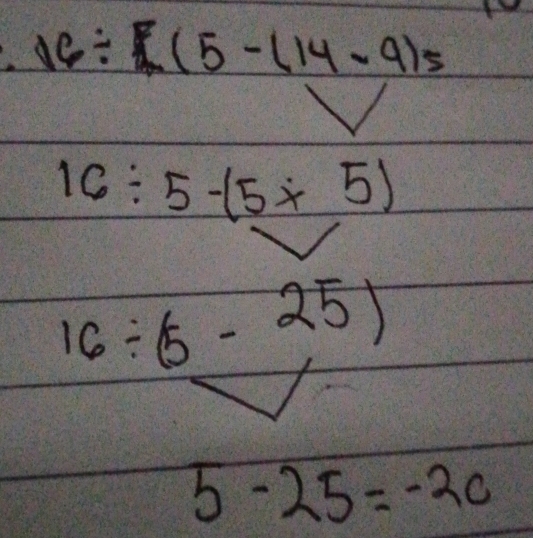 16 ÷ (5 - (14 - 9) 5
16 ÷ 5 - (5 × 5)
16 ÷ (5 - 25)
5 - 25 = -20